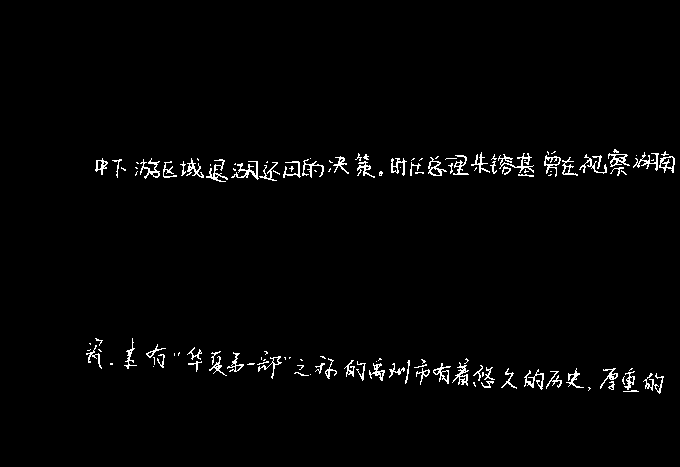 中下游区域退湖还田的决策。时任总理朱镕基曾在视察湖南
瓷.素有“华夏第一都”之称的禹州市有着悠久的历史,厚重的